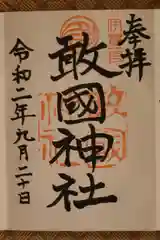 奉拝
敢國神社
令和二年九月二十日